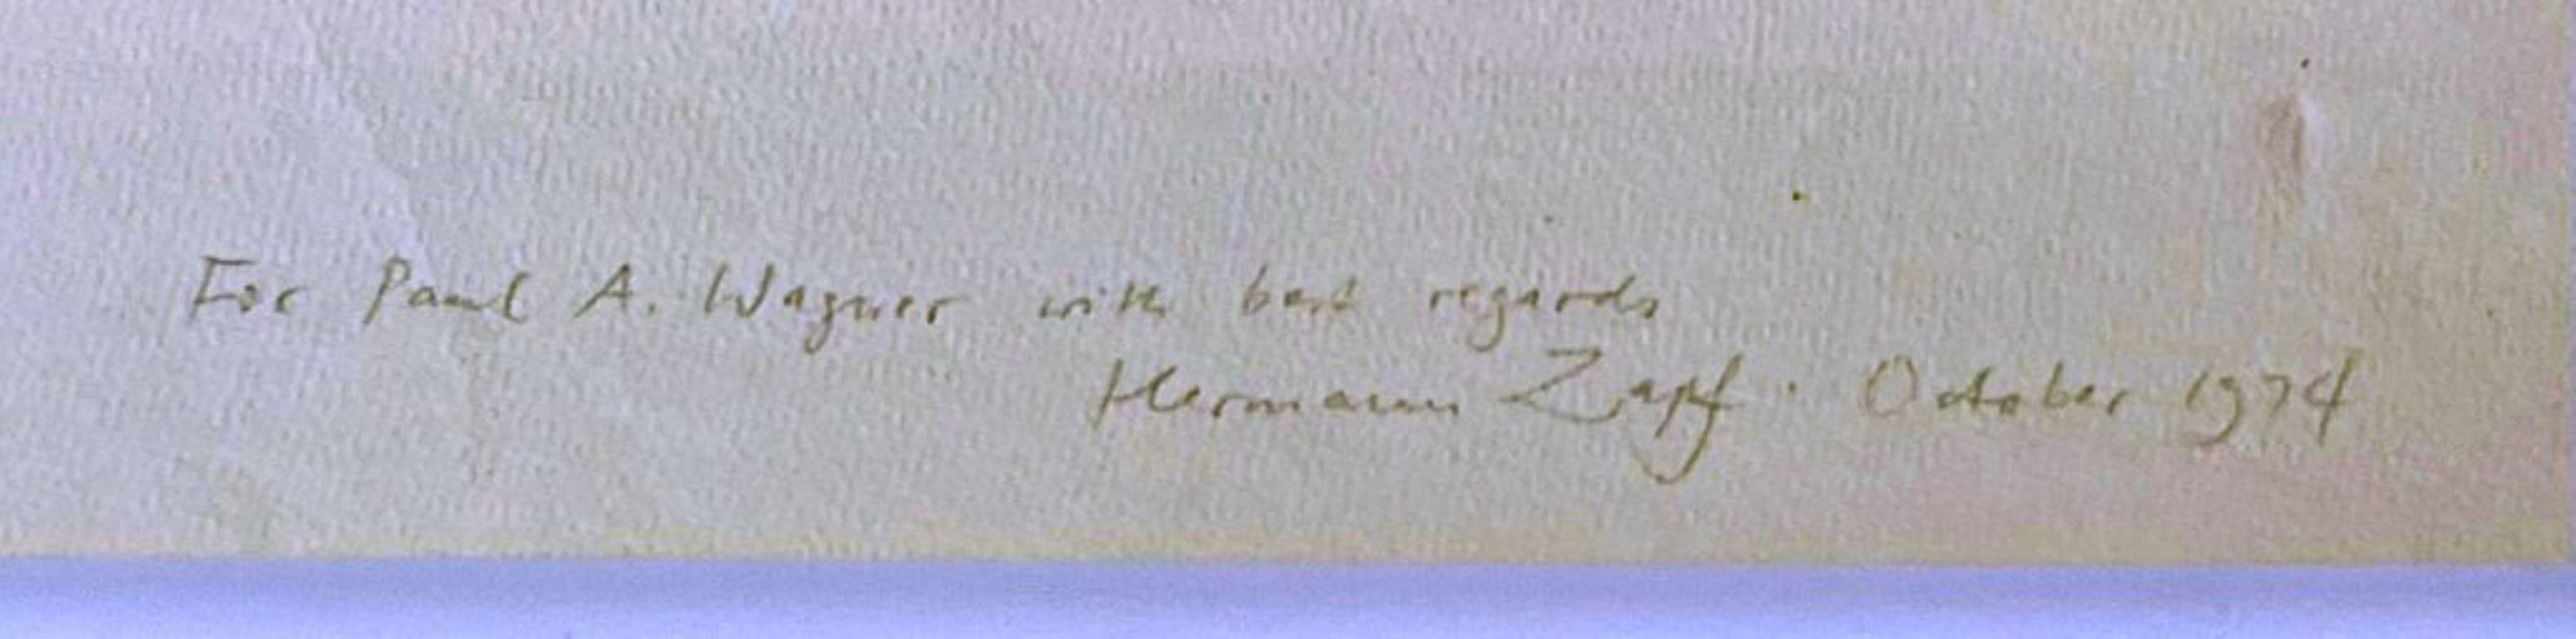 For Paul A. Wagner with best regards
Hermann Zapf · October 1974